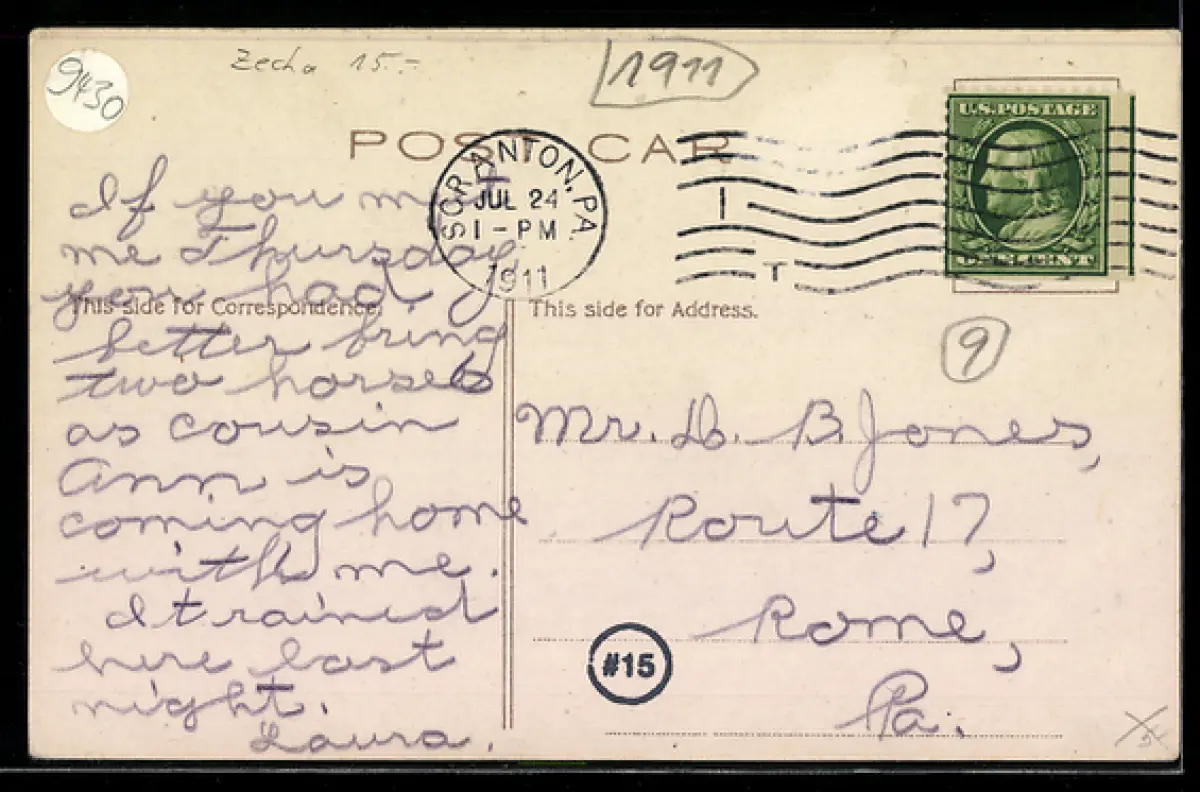 9430
Zecha 15.-
1911
POST CARD
U.S. POSTAGE
ONE CENT
SCRANTON, PA.
JUL 24
1-PM
1911
If you met
me Thursday
you had
This side for Correspondence.
better bring
two horses
as cousin
Ann is
coming home
with me.
It rained
here last
night.
Laura.
This side for Address.
9
Mr. D. B. Jones,
Route 17,
Rome,
Pa.
#15